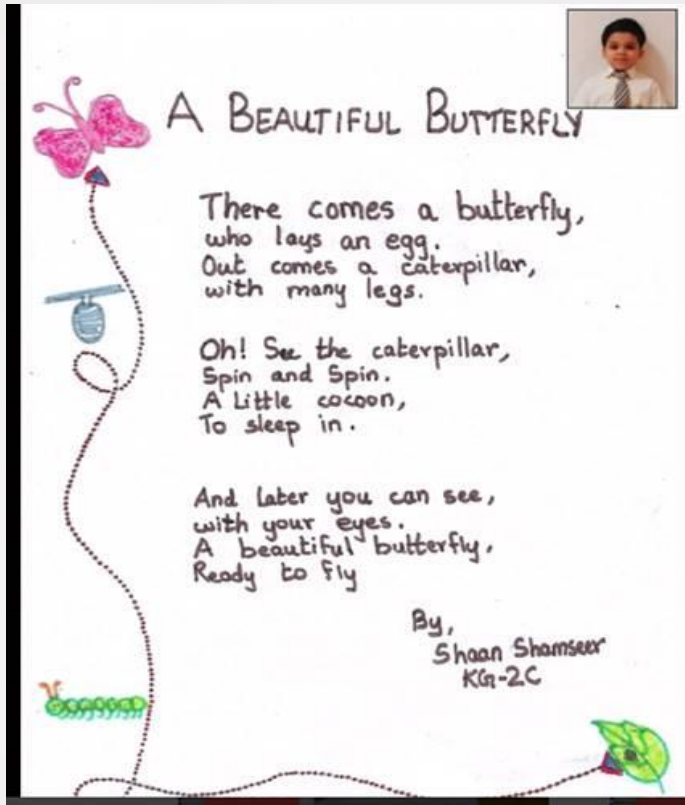 A BEAUTIFUL BUTTERFLY
There comes a butterfly,
who lays an egg.
Out comes a caterpillar,
with many legs.
Oh! See the caterpillar,
Spin and Spin.
A Little cocoon,
To sleep in.
And Later you can see,
with your eyes.
A beautiful butterfly,
Ready to fly
By,
Shaan Shamseer
KG-2C